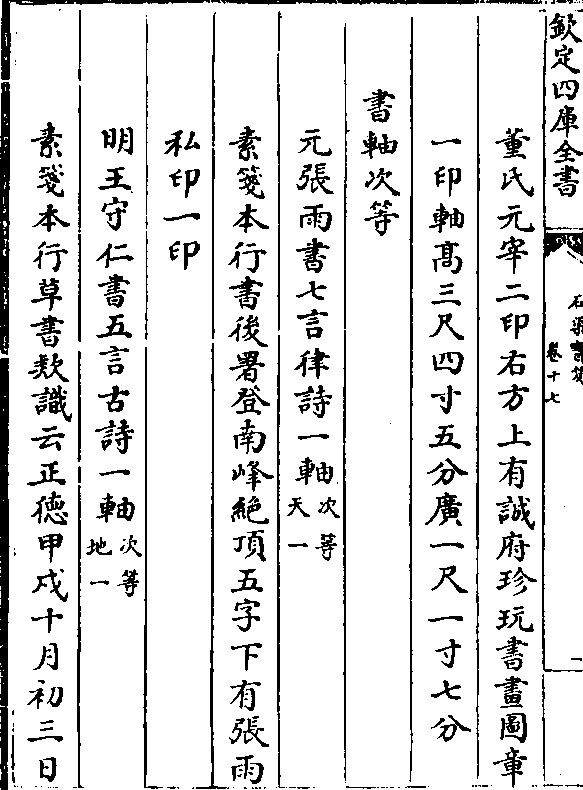 欽定四庫全書
卷十七
董氏元宰二印右方上有誠府珍玩書畫圖章
一印軸髙三尺四寸五分廣一尺一寸七分
書軸次等
元張雨書七言律詩一軸次等天一
素箋本行書後署登南峰絶頂五字下有張雨
私印一印
明王守仁書五言古詩一軸次等地一
素箋本行草書欵識云正徳甲戍十月初三日